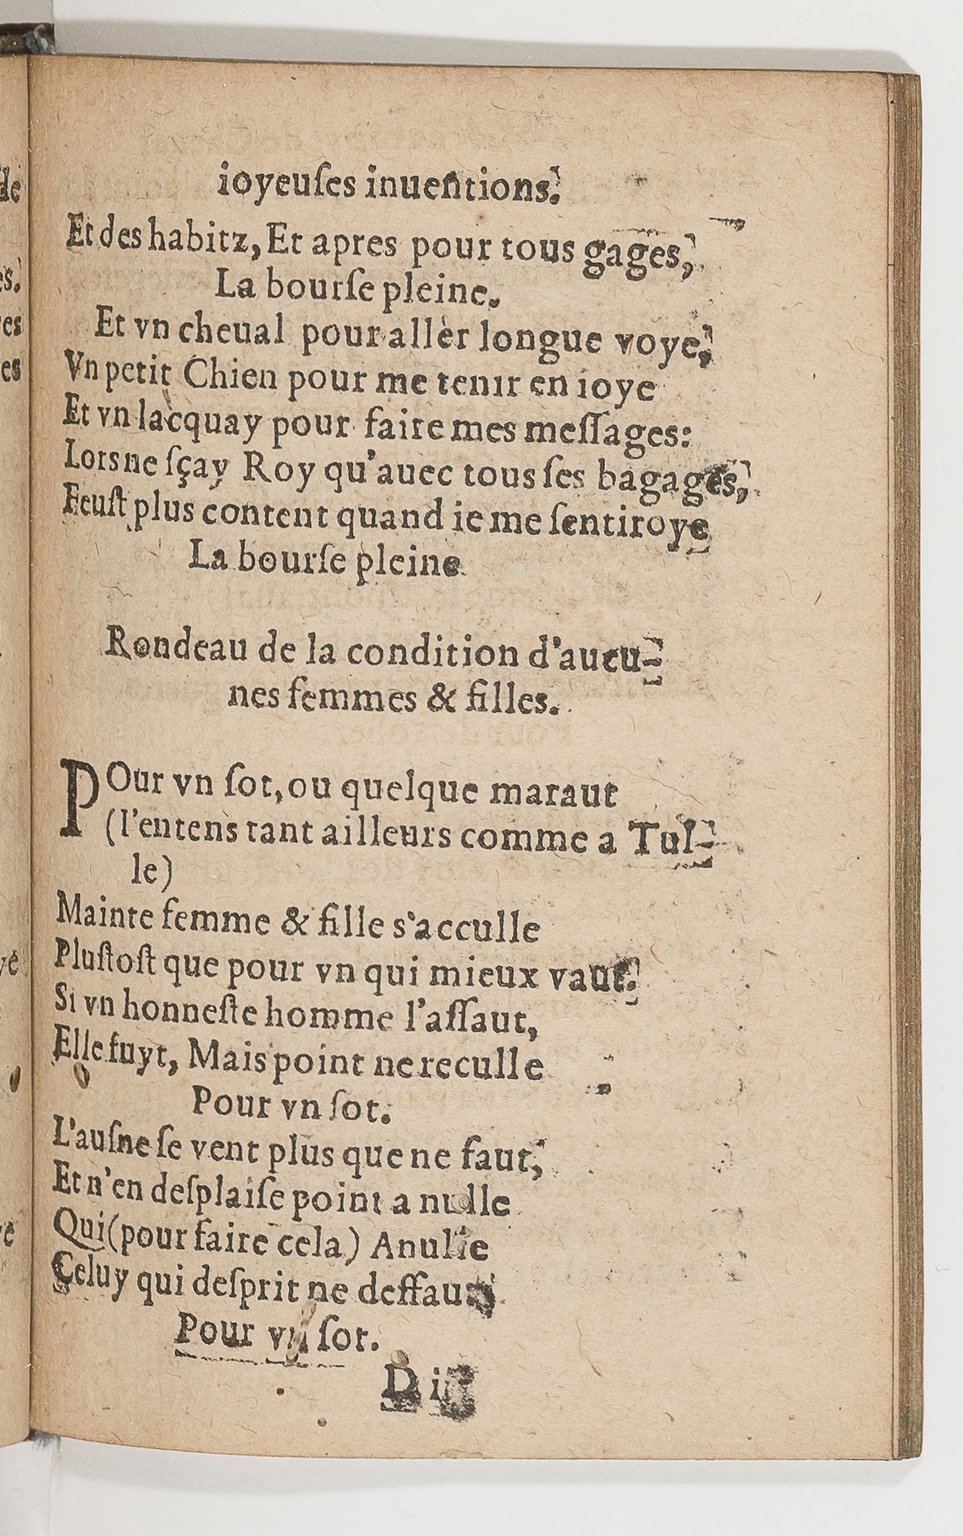 ioyeuſes inuentions.
Et des habitz, Et apres pour tous gages,
La bourſe pleine.
Et vn cheual pour aller longue voye,
Vn petit Chien pour me tenir en ioye
Et vn lacquay pour faire mes meſſages:
Lors ne ſçay Roy qu'auec tous ſes bagages,
Feuſt plus content quand ie me ſentiroye
La bourſe pleine
Rondeau de la condition d'aucu-
nes femmes & filles.
POur vn ſot, ou quelque maraut
(l'entens tant ailleurs comme a Tul-
le)
Mainte femme & fille s'acculle
Pluſtoſt que pour vn qui mieux vaut.
Si vn honneſte homme l'aſſaut,
Elle fuyt, Mais point ne reculle
Pour vn ſot.
L'auſne ſe vent plus que ne faut,
Et n'en deſplaiſe point a nulle
Qui (pour faire cela) Anulle
Celuy qui deſprit ne deffaut
Pour vn ſot.
D
de
es.
es
es